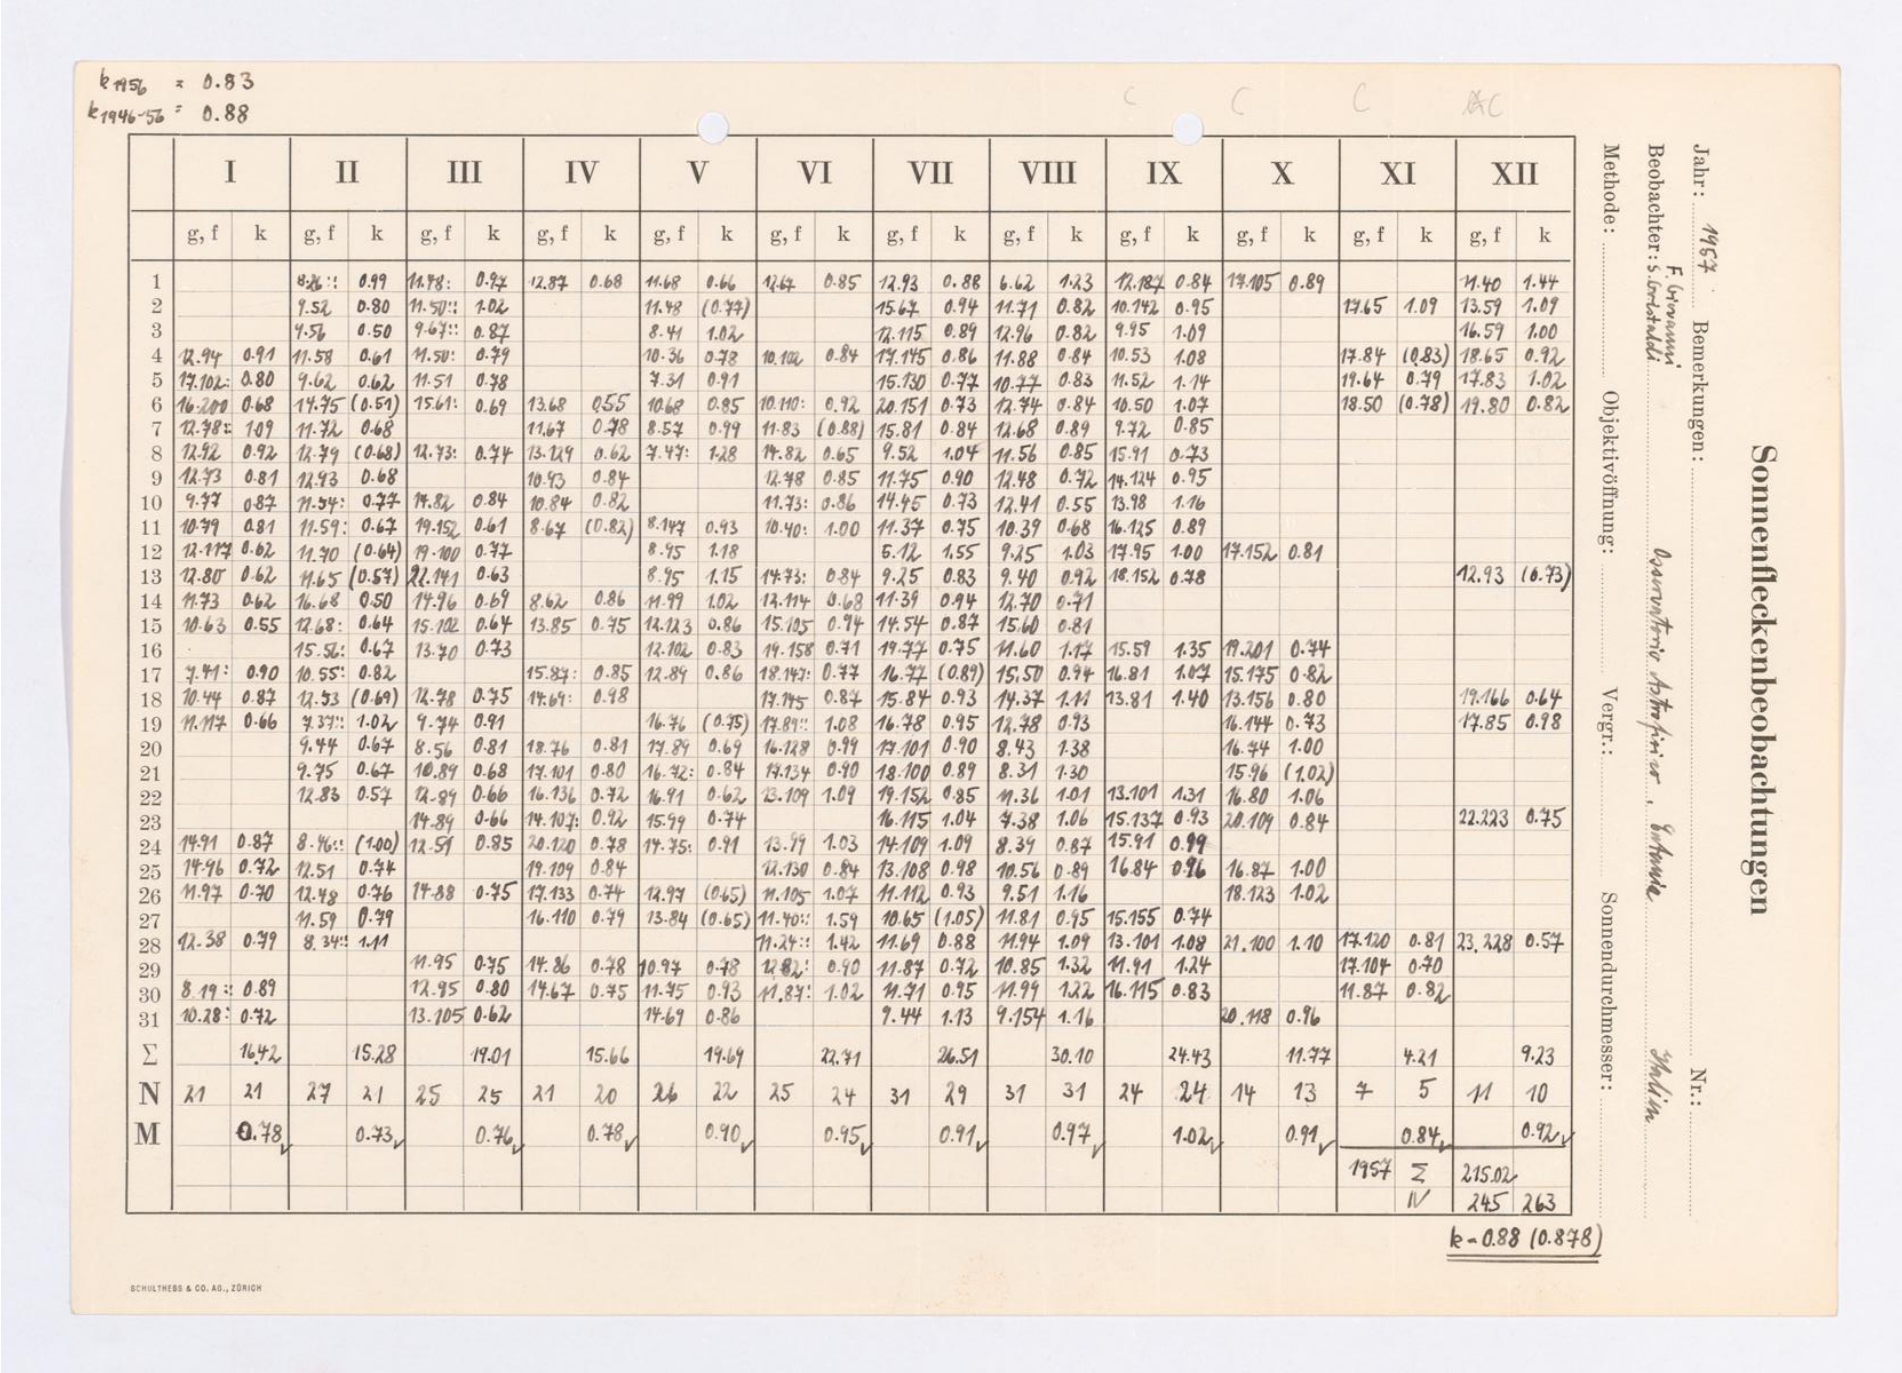 k1956 = 0.83
k1946-56 = 0.88
C C C AC
I II III IV V VI VII VIII IX X XI XII
g, f k g, f k g, f k g, f k g, f k g, f k g, f k g, f k g, f k g, f k g, f k g, f k
1 8.26:: 0.99 11.78: 0.97 12.87 0.68 11.68 0.66 12.67 0.85 12.93 0.88 6.62 1.23 12.187 0.84 17.105 0.89 11.40 1.44
2 9.52 0.80 11.50:: 1.02 11.48 (0.77) 15.67 0.94 11.71 0.82 10.142 0.95 17.65 1.09 13.59 1.09
3 9.56 0.50 9.67:: 0.87 8.41 1.02 12.115 0.89 12.96 0.82 9.95 1.09 16.59 1.00
4 12.94 0.91 11.58 0.61 11.50: 0.79 10.36 0.78 10.102 0.84 17.145 0.86 11.88 0.84 10.53 1.08 17.84 (0.83) 18.65 0.92
5 17.102: 0.80 9.62 0.62 11.51 0.78 7.31 0.91 15.130 0.77 10.77 0.83 11.52 1.14 19.64 0.79 17.83 1.02
6 16.200 0.68 14.75 (0.51) 15.61: 0.69 13.68 0.55 10.68 0.85 10.110: 0.92 20.151 0.73 12.74 0.84 10.50 1.07 18.50 (0.78) 19.80 0.82
7 12.78:: 1.09 11.72 0.68 11.67 0.78 8.57 0.99 11.83 (0.88) 15.81 0.84 12.68 0.89 9.72 0.85
8 12.92 0.92 12.79 (0.68) 12.73: 0.74 13.129 0.62 7.47: 1.28 14.82 0.65 9.52 1.04 11.56 0.85 15.91 0.73
9 12.73 0.81 12.93 0.68 10.93 0.84 12.78 0.85 11.75 0.90 12.48 0.72 14.124 0.95
10 9.77 0.87 11.54: 0.77 14.82 0.84 10.84 0.82 11.73: 0.86 14.45 0.73 12.41 0.55 13.98 1.16
11 10.79 0.81 11.59: 0.67 19.152 0.61 8.67 (0.82) 8.147 0.93 10.40: 1.00 11.37 0.75 10.39 0.68 16.125 0.89
12 12.117 0.62 11.70 (0.64) 19.100 0.77 8.95 1.18 5.12 1.55 9.25 1.03 17.95 1.00 17.152 0.81
13 12.80 0.62 11.65 (0.57) 22.141 0.63 8.95 1.15 14.73: 0.84 9.25 0.83 9.40 0.92 18.152 0.78 12.93 (0.73)
14 11.73 0.62 16.68 0.50 14.96 0.69 8.62 0.86 11.99 1.02 12.114 0.68 11.39 0.94 12.70 0.71
15 10.63 0.55 12.68: 0.64 15.102 0.64 13.85 0.75 12.123 0.86 15.105 0.94 14.54 0.87 15.60 0.81
16 15.56: 0.67 13.70 0.73 12.102 0.83 19.158 0.71 19.77 0.75 11.60 1.17 15.59 1.35 19.201 0.74
17 7.41: 0.90 10.55: 0.82 15.87: 0.85 12.89 0.86 18.147: 0.77 16.77 (0.89) 15.50 0.94 16.81 1.07 15.175 0.82
18 10.44 0.87 12.53 (0.69) 12.78 0.75 14.69: 0.98 17.145 0.87 15.84 0.93 14.37 1.11 13.81 1.40 13.156 0.80 19.166 0.64
19 11.117 0.66 7.37:: 1.02 9.74 0.91 16.76 (0.75) 17.89:: 1.08 16.78 0.95 12.78 0.93 16.144 0.73 17.85 0.98
20 9.44 0.67 8.56 0.81 18.76 0.81 17.89 0.69 16.128 0.99 17.101 0.90 8.43 1.38 16.74 1.00
21 9.75 0.67 10.89 0.68 17.101 0.80 16.72: 0.84 17.134 0.90 18.100 0.89 8.31 1.30 15.96 (1.02)
22 12.83 0.57 12.89 0.66 16.136 0.72 16.91 0.62 13.109 1.09 19.152 0.85 11.36 1.01 13.101 1.31 16.80 1.06
23 14.89 0.66 14.107: 0.92 15.99 0.74 16.115 1.04 7.38 1.06 15.137 0.93 20.109 0.84 22.223 0.75
24 14.91 0.87 8.46:: (1.00) 12.51 0.85 20.120 0.78 14.75: 0.91 13.99 1.03 14.109 1.09 8.39 0.87 15.91 0.99
25 14.96 0.72 12.51 0.74 19.109 0.84 12.130 0.84 13.108 0.98 10.56 0.89 16.84 0.96 16.87 1.00
26 11.97 0.70 12.48 0.76 14.88 0.75 17.133 0.74 12.97 (0.65) 11.105 1.07 11.112 0.93 9.51 1.16 18.123 1.02
27 11.59 0.79 16.110 0.79 13.84 (0.65) 11.40:: 1.59 10.65 (1.05) 11.81 0.95 15.155 0.74
28 12.38 0.79 8.34:: 1.11 11.24:: 1.42 11.69 0.88 11.94 1.09 13.101 1.08 21.100 1.10 17.120 0.81 23.228 0.57
29 11.95 0.75 14.86 0.78 10.97 0.78 12.82: 0.90 11.87 0.72 10.85 1.32 11.91 1.24 17.104 0.70
30 8.19:: 0.89 12.95 0.80 14.67 0.75 11.75 0.93 11.87: 1.02 11.71 0.95 11.99 1.22 16.115 0.83 11.87 0.82
31 10.28: 0.72 13.105 0.62 14.69 0.86 9.44 1.13 9.154 1.16 20.118 0.96
Σ 16.42 15.28 19.01 15.66 19.69 22.71 26.51 30.10 24.43 11.77 4.21 9.23
N 21 21 27 21 25 25 21 20 26 22 25 24 31 29 31 31 24 24 14 13 7 5 11 10
M 0.78 0.73 0.76 0.78 0.90 0.95 0.91 0.97 1.02 0.91 0.84 0.92
1957 Σ 215.02
N 245 263
k = 0.88 (0.878)
SCHULTHESS & CO. AG., ZÜRICH
Sonnenfleckenbeobachtungen
Jahr: 1957 Bemerkungen: Nr.:
F. Giovanni
Beobachter: S. Cortstaldi Osservatorio Astrofisico, Catania Italien
Methode: Objektivöffnung: Vergr.: Sonnendurchmesser: